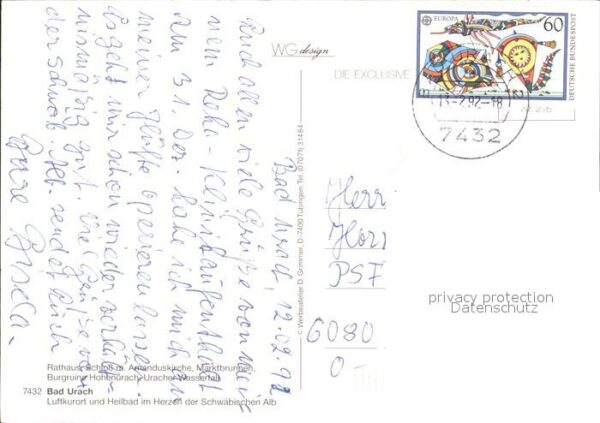 Bad Urach, 12.02.92
Euch allen viele Grüße von mei-
nem Reha-Klinikaufenthalt
Am 31. Dez. habe ich mich an
meiner Hüfte operieren lassen.
Es geht mir schon wieder verhält-
nismäßig gut. Viel Grüße von
der Schwäb. Alb. sendet Euch
Eure Gisela.
WG design
DIE EXCLUSIVE
© Werbeatelier D. Grimmer, D-7400 Tübingen, Tel. (07071) 31484
EUROPA 60
DEUTSCHE BUNDESPOST
-2.92-18
7432
Herr
PSF
6080
O-
privacy protection
Datenschutz
Rathaus, Schloß m. Amanduskirche, Marktbrunnen,
Burgruine Hohenurach, Uracher Wasserfall
7432 Bad Urach
Luftkurort und Heilbad im Herzen der Schwäbischen Alb